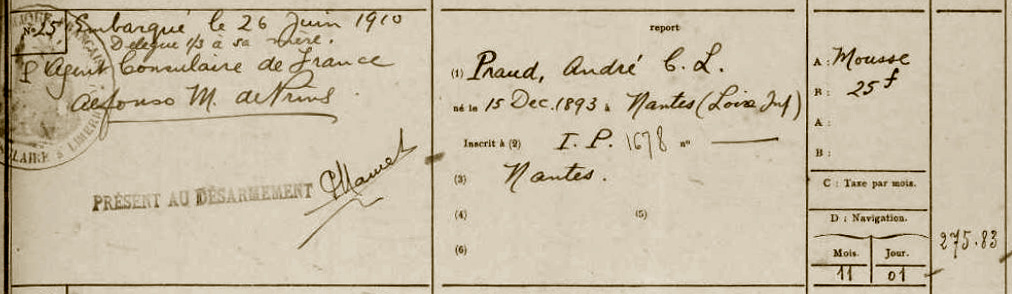 N° 25 Embarqué le 26 Juin 1910
Délégue 1/3 à sa mère.
P Agent Consulaire de France
Alfonso M. de
PRÉSENT AU DÉSARMEMENT
report
(1) Praud, André C. L.
né le 15 Dec. 1893 à Nantes (Loire Inf)
Inscrit à (2) I. P. 1678 n° —
(3) Nantes.
(4) (5)
(6)
A : Mousse
B : 25 f
A :
B :
C : Taxe par mois.
D : Navigation.
Mois. Jour.
11 01
275.83